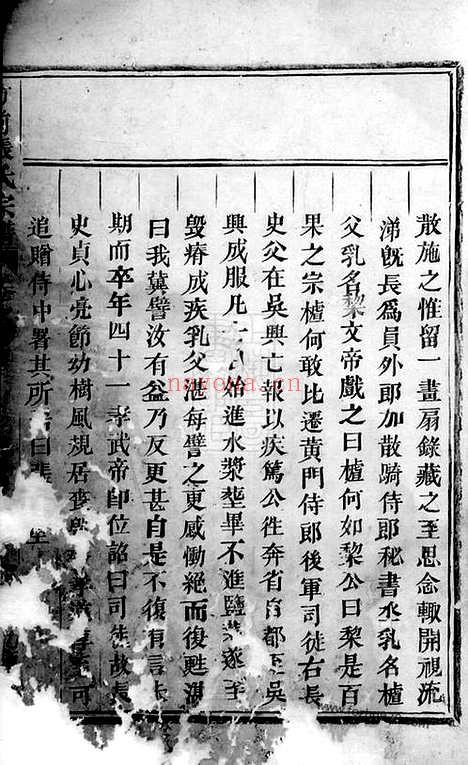 散施之惟留一畫扇錄藏之至思念輒開視流
涕旣長爲員外郎加散騎侍郎秘書丞乳名樝
父乳名黎文帝戲之曰樝何如黎公曰黎是百
果之宗樝何敢比遷黃門侍郎後軍司徒右長
史父在吳興亡報以疾篤公徃奔省自都至吳
興成服凡十八始進水漿塟畢不進鹽遂
毁瘠成疾乳父湛每譬之更感慟絕而後甦湛
曰我冀譬汝有益乃反更甚自是不復有言未
期而卒年四十一孝武帝即位詔曰司徒故長
史貞心亮節幼樹風規居喪可
追贈侍中署其所居曰張
張氏宗譜
nayona.cn